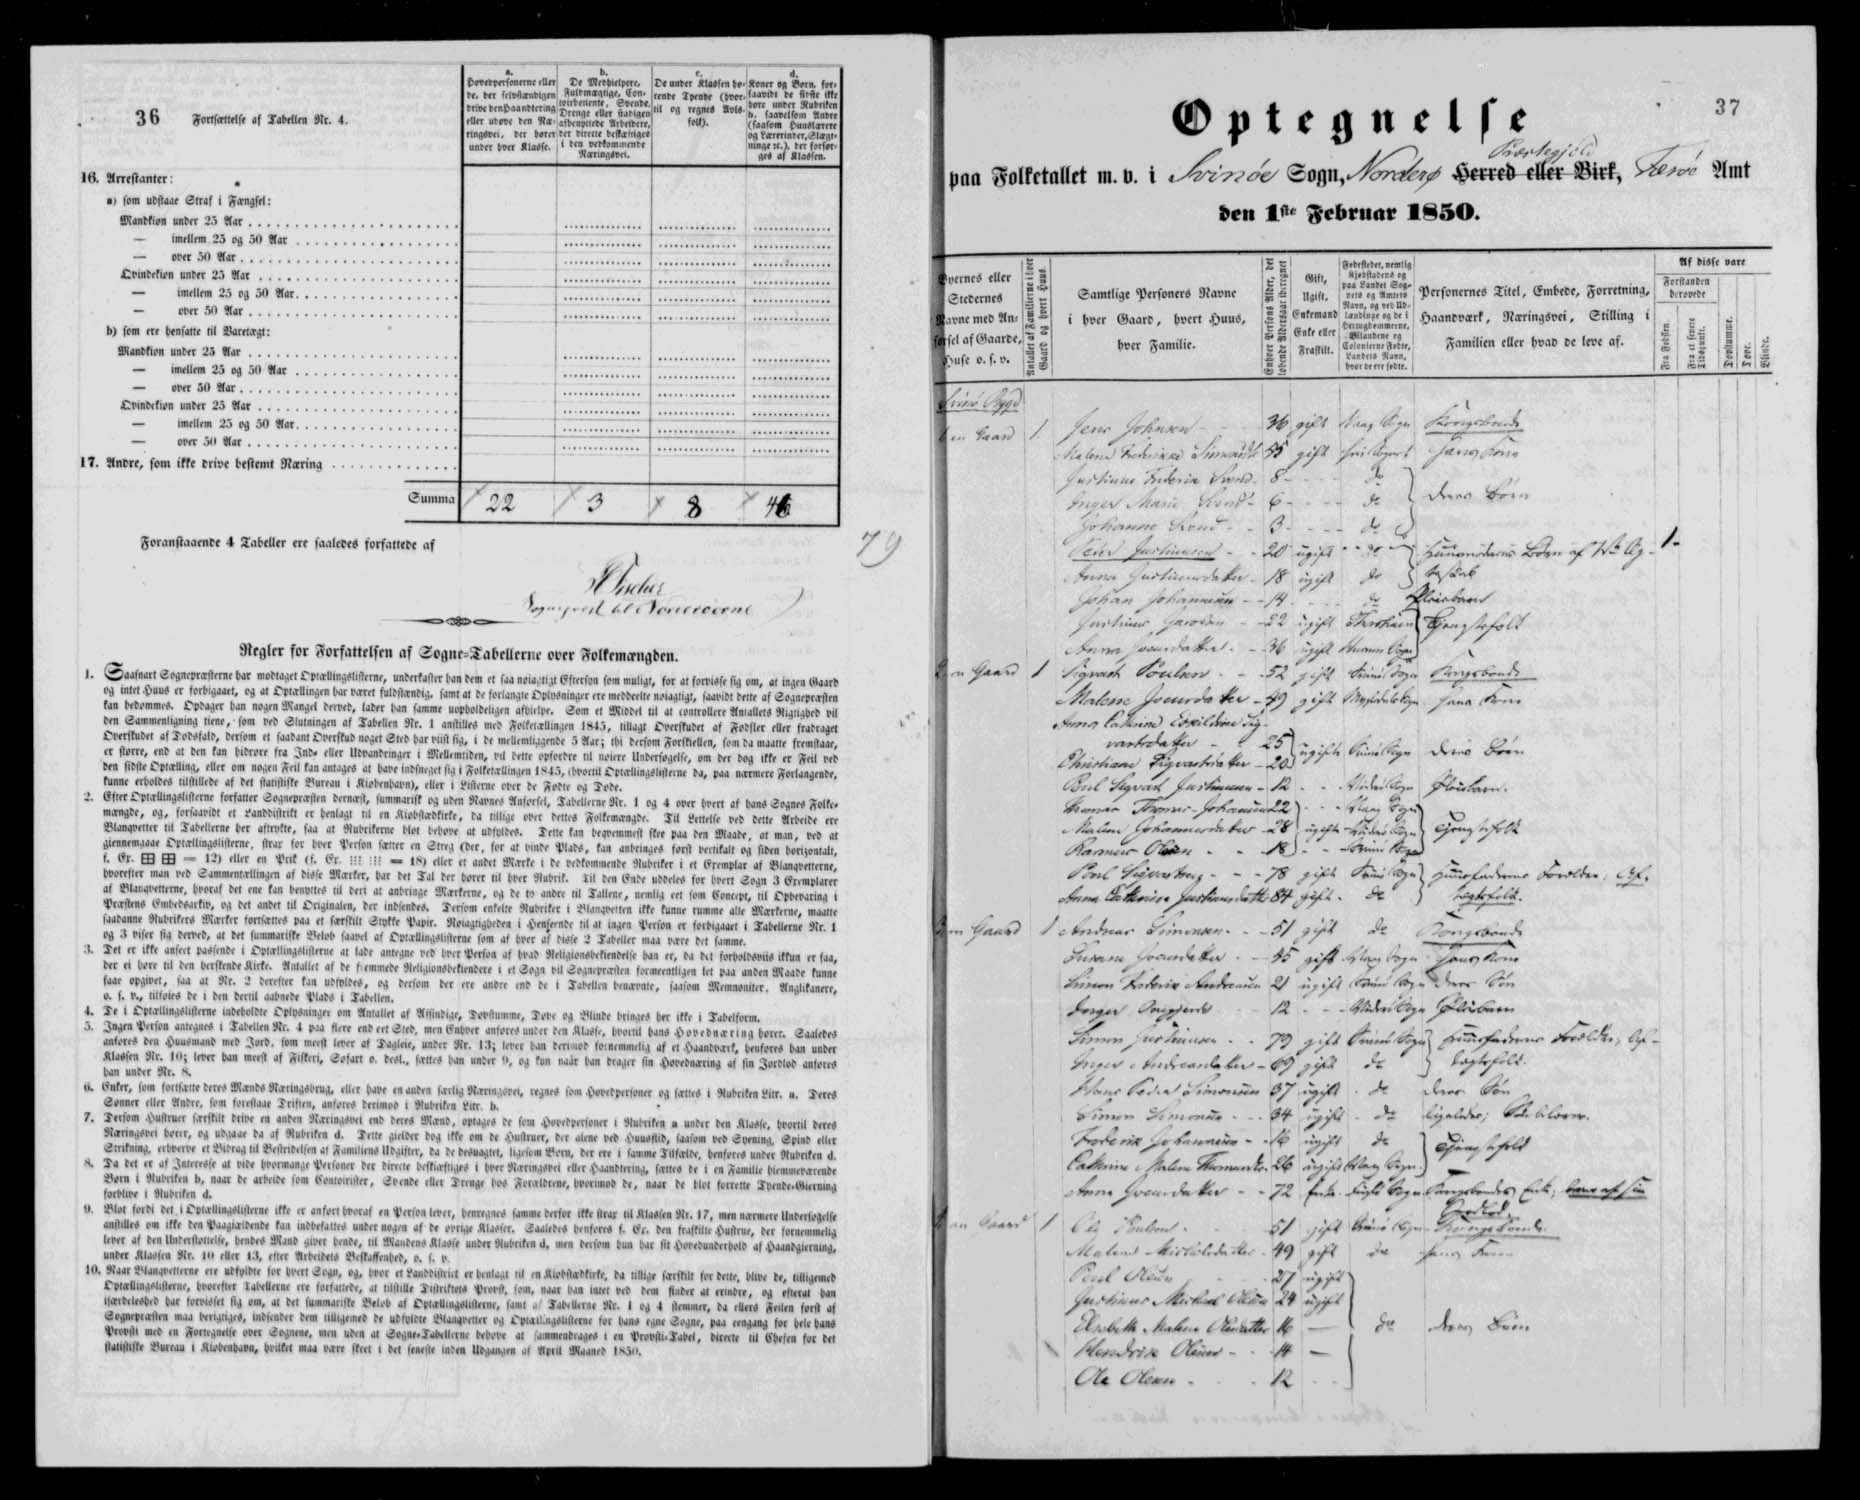 36 Fortsættelse af Tabellen Nr. 4.
a.
Hovedpersonerne eller
de, der selvstændigen
drive den Haandtering
eller udøve den Næ-
ringsvei, der hører
under hver Klasse.
b.
De Medhielpere,
Fuldmægtige, Con-
toirbetiente, Svende,
Drenge eller stadigen
afbenyttede Arbeidere,
der directe beskæftiges
i den vedkommende
Næringsvei.
c.
De under Klassen hø-
rende Tyende (hvor-
til og regnes Avls-
folk).
d.
Koner og Børn, for-
saavidt de sidste ikke
høre under Rubriken
b, saavelsom Andre
(saasom Huuslærere
og Lærerinder, Slægt-
ninge ɾc.), der forsør-
ges af Klassen.
16. Arrestanter:
a) som udstaae Straf i Fængsel:
Mandkiøn under 25 Aar
— imellem 25 og 50 Aar
— over 50 Aar
Qvindekiøn under 25 Aar
— imellem 25 og 50 Aar
— over 50 Aar
b) som ere hensatte til Varetægt:
Mandkiøn under 25 Aar
— imellem 25 og 50 Aar
— over 50 Aar
Qvindekiøn under 25 Aar
— imellem 25 og 50 Aar
— over 50 Aar
17. Andre, som ikke drive bestemt Næring
Summa 22 3 8 46
79
Foranstaaende 4 Tabeller ere saaledes forfattede af
Regler for Forfattelsen af Sogne-Tabellerne over Folkemængden.
1. Saasnart Sognepræsterne har modtaget Optællingslisterne, underkaster han dem et saa nøiagtigt Eftersyn som muligt, for at forvisse sig om, at ingen Gaard
og intet Huus er forbigaaet, og at Optællingen har været fuldstændig, samt at de forlangte Oplysninger ere meddeelte nøiagtigt, saavidt dette af Sognepræsten
kan bedømmes. Opdager han nogen Mangel derved, lader han samme uopholdeligen afhielpe. Som et Middel til at controllere Antallets Rigtighed vil
den Sammenligning tiene, som ved Slutningen af Tabellen Nr. 1 anstilles med Folketællingen 1845, tillagt Overskudet af Fødsler eller fradraget
Overskudet af Dødsfald, dersom et saadant Overskud noget Sted har viist sig, i de mellemliggende 5 Aar; thi dersom Forskiellen, som da maatte fremstaae,
er større, end at den kan hidrøre fra Ind- eller Udvandringer i Mellemtiden, vil dette opfordre til nøiere Undersøgelse, om der dog ikke er Feil ved
den sidste Optælling, eller om nogen Feil kan antages at have indsneget sig i Folketællingen 1845, (hvortil Optællingslisterne da, paa nærmere Forlangende,
kunne erholdes tilstillede af det statistiske Bureau i Kiøbenhavn), eller i Listerne over de Fødte og Døde.
2. Efter Optællingslisterne forfatter Sognepræsten dernæst, summarisk og uden Navnes Anførsel, Tabellerne Nr. 1 og 4 over hvert af hans Sognes Folke-
mængde, og, forsaavidt et Landdistrikt er henlagt til en Kiøbstædkirke, da tillige over dettes Folkemængde. Til Lettelse ved dette Arbeide ere
Blanqvetter til Tabellerne her aftrykte, saa at Rubrikerne blot behøve at udfyldes. Dette kan beqvemmest skee paa den Maade, at man, ved at
giennemgaae Optællingslisterne, strax for hver Person sætter en Streg (der, for at vinde Plads, kan anbringes først vertikalt og siden horizontalt,
f. Ex. = 12) eller en Prik (f. Ex. = 18) eller et andet Mærke i de vedkommende Rubriker i et Exemplar af Blanqvetterne,
hvorefter man ved Sammentællingen af disse Mærker, har det Tal der hører til hver Rubrik. Til den Ende uddeles for hvert Sogn 3 Exemplarer
af Blanqvetterne, hvoraf det ene kan benyttes til deri at anbringe Mærkerne, og de to andre til Tallene, nemlig eet som Concept, til Opbevaring i
Præstens Embedsarkiv, og det andet til Originalen, der indsendes. Dersom enkelte Rubriker i Blanqvetten ikke kunne rumme alle Mærkerne, maatte
saadanne Rubrikers Mærker fortsættes paa et særskilt Stykke Papir. Nøiagtigheden i Henseende til at ingen Person er forbigaaet i Tabellerne Nr. 1
og 3 viser sig derved, at det summariske Beløb saavel af Optællingslisterne som af hver af disse 2 Tabeller maa være det samme.
3. Det er ikke anseet passende i Optællingslisterne at lade antegne ved hver Person af hvad Religionsbekiendelse han er, da det forholdsviis ikkun er faa,
der ei høre til den herskende Kirke. Antallet af de fremmede Religionsbekiendere i et Sogn vil Sognepræsten formeentligen let paa anden Maade kunne
faae opgivet, saa at Nr. 2 derefter kan udfyldes, og dersom der ere andre end de i Tabellen benævnte, saasom Memnoniter, Anglikanere,
o. s. v., tilføies de i den dertil aabnede Plads i Tabellen.
4. De i Optællingslisterne indeholdte Oplysninger om Antallet af Afsindige, Døvstumme, Døve og Blinde bringes her ikke i Tabelform.
5. Ingen Person antegnes i Tabellen Nr. 4 paa flere end eet Sted, men Enhver anføres under den Klasse, hvortil hans Hovednæring hører. Saaledes
anføres den Huusmand med Jord, som meest lever af Dagleie, under Nr. 13; lever han derimod fornemmelig af et Haandværk, henføres han under
Klassen Nr. 10; lever han meest af Fiskeri, Søfart o. desl., sættes han under 9, og kun naar han drager sin Hovednæring af sin Jordlod anføres
han under Nr. 8.
6. Enker, som fortsætte deres Mænds Næringsbrug, eller have en anden særlig Næringsvei, regnes som Hovedpersoner og sættes i Rubriken Litr. a. Deres
Sønner eller Andre, som forestaae Driften, anføres derimod i Rubriken Litr. b.
7. Dersom Hustruer særskilt drive en anden Næringsvei end deres Mænd, optages de som Hovedpersoner i Rubriken a under den Klasse, hvortil deres
Næringsvei hører, og udgaae da af Rubriken d. Dette gielder dog ikke om de Hustruer, der alene ved Huusflid, saasom ved Syening, Spind eller
Strikning, erhverve et Bidrag til Bestridelsen af Familiens Udgifter, da de desuagtet, ligesom Børn, der ere i samme Tilfælde, henføres under Rubriken d.
8. Da det er af Interesse at vide hvormange Personer der directe beskiæftiges i hver Næringsvei eller Haandtering, sættes de i en Familie hiemmeværende
Børn i Rubriken b, naar de arbeide som Contoirister, Svende eller Drenge hos Forældrene, hvorimod de, naar de blot forrette Tyende-Gierning
forblive i Rubriken d.
9. Blot fordi det i Optællingslisterne ikke er anført hvoraf en Person lever, henregnes samme derfor ikke strax til Klassen Nr. 17, men nærmere Undersøgelse
anstilles om ikke den Paagiældende kan indbefattes under nogen af de øvrige Klasser. Saaledes henføres f. Ex. den fraskilte Hustrue, der fornemmelig
lever af den Understøttelse, hendes Mand giver hende, til Mandens Klasse under Rubriken d, men dersom hun har sit Hovedunderhold af Haandgierning,
under Klassen Nr. 10 eller 13, efter Arbeidets Beskaffenhed, o. s. v.
10. Naar Blanqvetterne ere udfyldte for hvert Sogn, og, hvor et Landdistrict er henlagt til en Kiøbstædkirke, da tillige særskilt for dette, blive de, tilligemed
Optællingslisterne, hvorefter Tabellerne ere forfattede, at tilstille Distriktets Provst, som, naar han intet ved dem finder at erindre, og efterat han
især deleshed har forvisset sig om, at det summariske Beløb af Optællingslisterne, samt af Tabellerne Nr. 1 og 4 stemmer, da ellers Feilen først af
Sognepræsten maa berigtiges, indsender dem tilligemed de udfyldte Blanqvetter og Optællingslisterne for hans egne Sogne, paa eengang for hele hans
Provsti med en Fortegnelse over Sognene, men uden at Sogne-Tabellerne behøve at sammendrages i en Provsti-Tabel, directe til Chefen for det
statistiske Bureau i Kiøbenhavn, hvilket maa være skeet i det seneste inden Udgangen af April Maaned 1850.
37
Optegnelse
Præstegjeld
paa Folketallet m. v. i Svinöe Sogn, Norderø Herred eller Birk, Færöe Amt
den 1ste Februar 1850.
Byernes eller
Stedernes
Navne med An-
førsel af Gaarde,
Huse o. s. v.
Antallet af Familierne i hver
Gaard og hvert Huus.
Samtlige Personers Navne
i hver Gaard, hvert Huus,
hver Familie.
Enhver Persons Alder, det
løbende Aldersaar iberegnet
Gift,
Ugift,
Enkemand
Enke eller
Fraskilt.
Fødestedet, nemlig
Kjøbstadens og
paa Landet Sog-
nets og Amtets
Navn, og ved Ud-
lændinge og de i
Hertugdømmerne,
Bilandene og
Colonierne Fødte,
Landets Navn,
hvor de ere fødte.
Personernes Titel, Embede, Forretning,
Haandværk, Næringsvei, Stilling i
Familien eller hvad de leve af.
Af disse vare
Forstanden
berøvede
Fra Fødslen.
Fra et senere
Tidspunkt.
Døvstumme.
Døve.
Blinde.
Svinö Bygd
en Gaard 1. Jens Johnsen 36 gift Vaag Sogn Kongsbonde
gift hans Kone
8 do
Inger Marie 6 do deres Börn
Johanne 3 do
20 ugift do 1
Anna Justinusdatter 18 ugift do
Johan Johannesen 14 do Pleiebarn
Justinus Jacobsen 22 ugift Tjenestefolk
Anna Joensdatter 36 ugift Sogn
en Gaard 1 Sigvart Poulsen 52 gift Svinö Sogn Kongsbonde
Malene Joensdatter 49 gift hans Kone
Anna Cathrine Sig-
vartsdatter 25
ugifte Svinö Sogn deres Börn
Christiane Sigvartsdatter 20
Poul Sigvart Justinusen 12 Pleiebarn.
Thomas 22 Vaag Sogn
Malene Johannesdatter 28 ugifte Tjenestefolk
Rasmus Olesen 18 Svinö Sogn
Poul 78 gift Svinö Sogn Huusfaderens Forældre, Af-
Anna Cathrine Justinusdatter 84 gift do tægtsfolk.
en Gaard 1 Andreas Simonsen 51 gift do Kongsbonde
Susanne Joensdatter 55 gift Vaag Sogn hans Kone
Simon Frederik Andreasen 21 ugift Svinö Sogn deres Sön
12 Sogn Pleiebarn
Simon Justinusen 79 gift Svinö Sogn Huusfaderens Forældre, Af-
Inger Andreasdatter 69 gift do tægtsfolk.
Hans Peder Simonsen 37 ugift do deres Sön
Simon Simonsen 34 ugift do
Frederik Johannesen 16 ugift do Tjenestefolk
Cathrine Malene 26 ugift Vaag Sogn
Anna Joensdatter 72 Enke Fuglö Sogn Kongsbondes Enke, lever af sin
Jordlod
en Gaard 1 Ole Poulsen 51 gift Svinö Sogn Kongsbonde
Malene Michelsdatter 49 gift do hans Kone
Poul Olesen 27 ugift
Justinus Michael Olesen 24 ugift
Elsebeth Malene Olesdatter 16 — do deres Börn
Hendrik Olesen 14 —
Ole Olesen 12